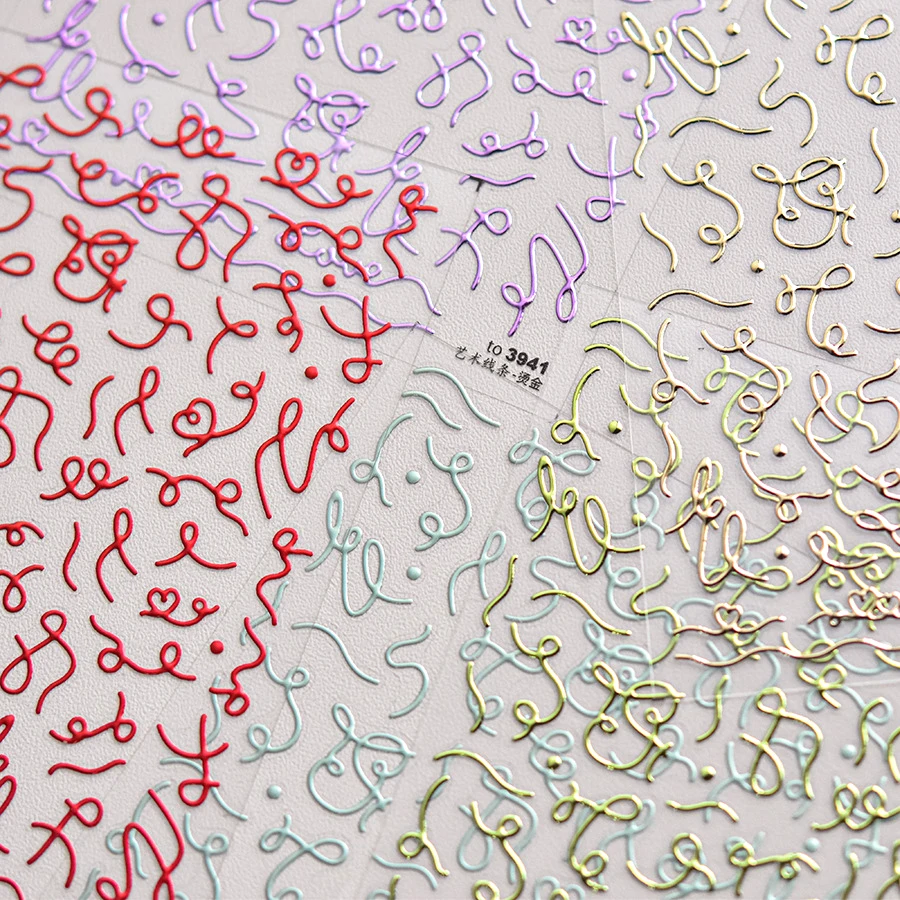 to 3941
艺术线条-烫金